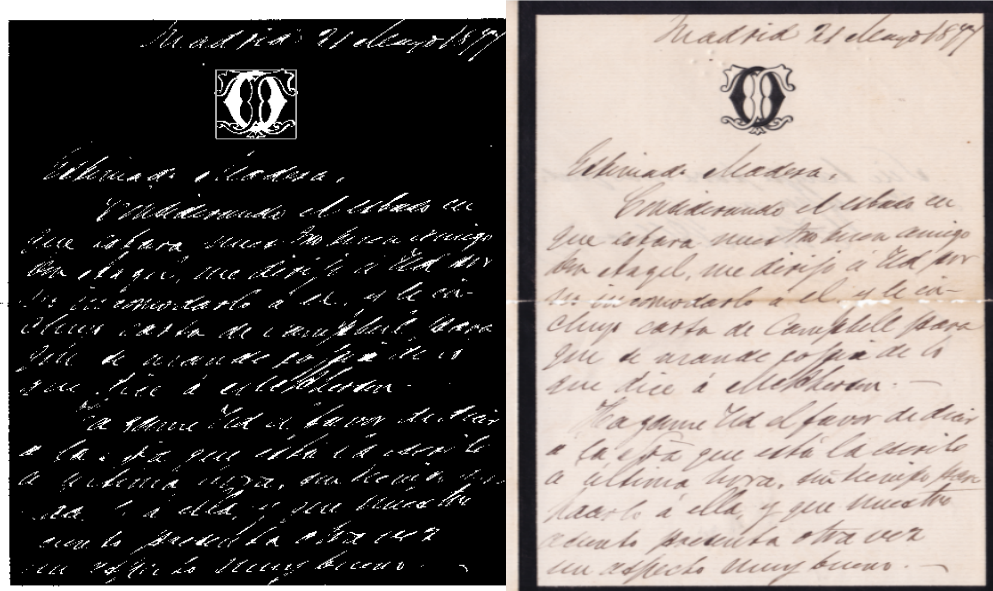 Madrid 21 Mayo 1897
Estimado Madera,
Considerando el estado en
que estara nuestro buen amigo
Don Angel, me dirijo á Ud por
no incomodarlo á el, y le in-
cluyo carta de Campbell para
que se mande copia de lo
que dice á
Hagame Ud el favor de decir
a la Sra que está la escribo
a última hora, sin tiempo para
á ella, y que nuestro
asunto presenta otra vez
un aspecto muy bueno. —
Madrid 21 Mayo 1897
Estimado Madera,
Considerando el estado en
que estara nuestro buen amigo
Don Angel, me dirijo á Ud por
no incomodarlo á el, y le in-
cluyo carta de Campbell para
que se mande copia de lo
que dice á —
Hagame Ud el favor de decir
a la Sra que está la escribo
a última hora, sin tiempo para
hacerlo á ella, y que nuestro
asunto presenta otra vez
un aspecto muy bueno. —